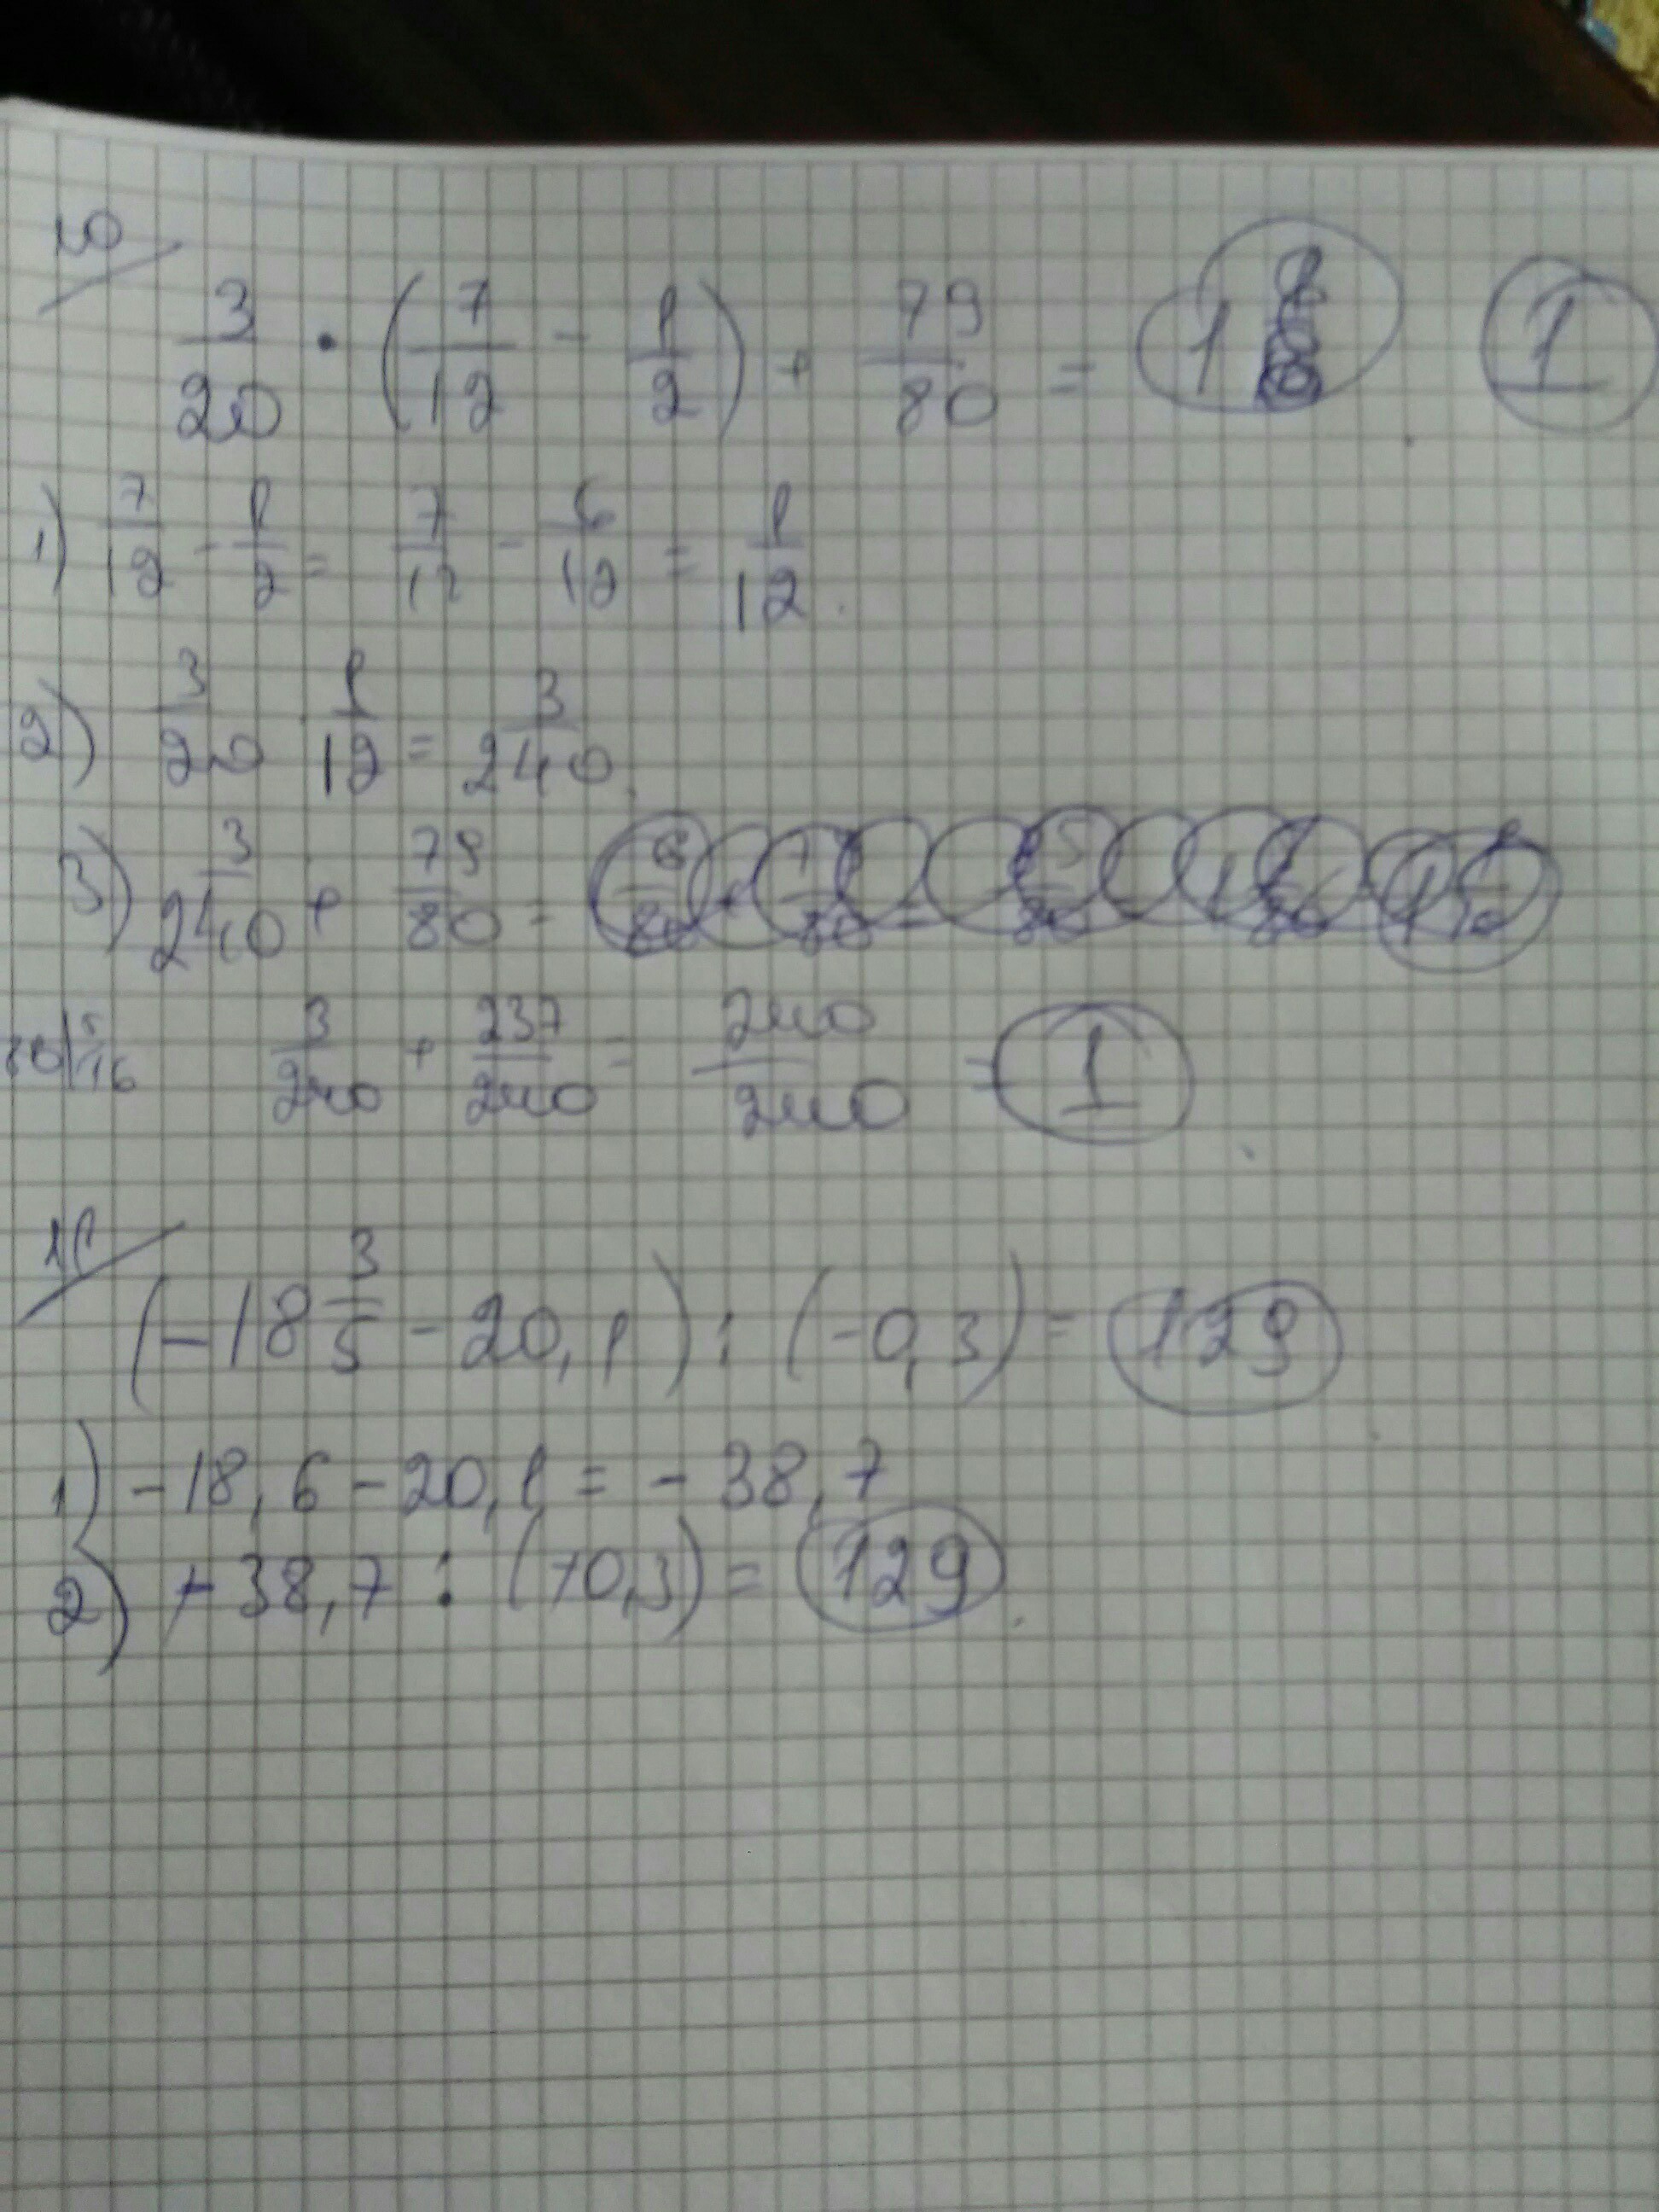 10
3/20 · (7/12 - 1/2) + 79/80 = 1 1
1) 7/12 - 1/2 = 7/12 - 6/12 = 1/12.
2) 3/20 · 1/12 = 3/240.
3) 3/240 + 79/80 =
3/240 + 237/240 = 240/240 = 1
11
(-18 3/5 - 20,1) : (-0,3) = 129
1) -18,6 - 20,1 = -38,7
2) +38,7 : (+0,3) = 129.